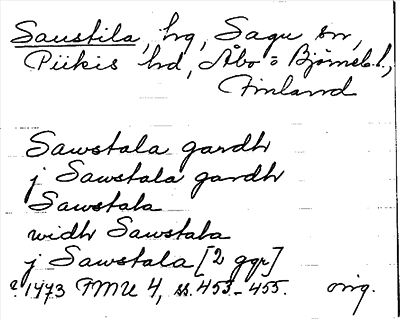 Saustila, hg, Sagu sn,
Piikis hd, Åbo o Björneb. l.,
Finland
Sawstala gardh
j Sawstala gardh
Sawstala
widh Sawstala
j Sawstala [2 ggr]
1473 FMU 4, ss. 453-455. orig.